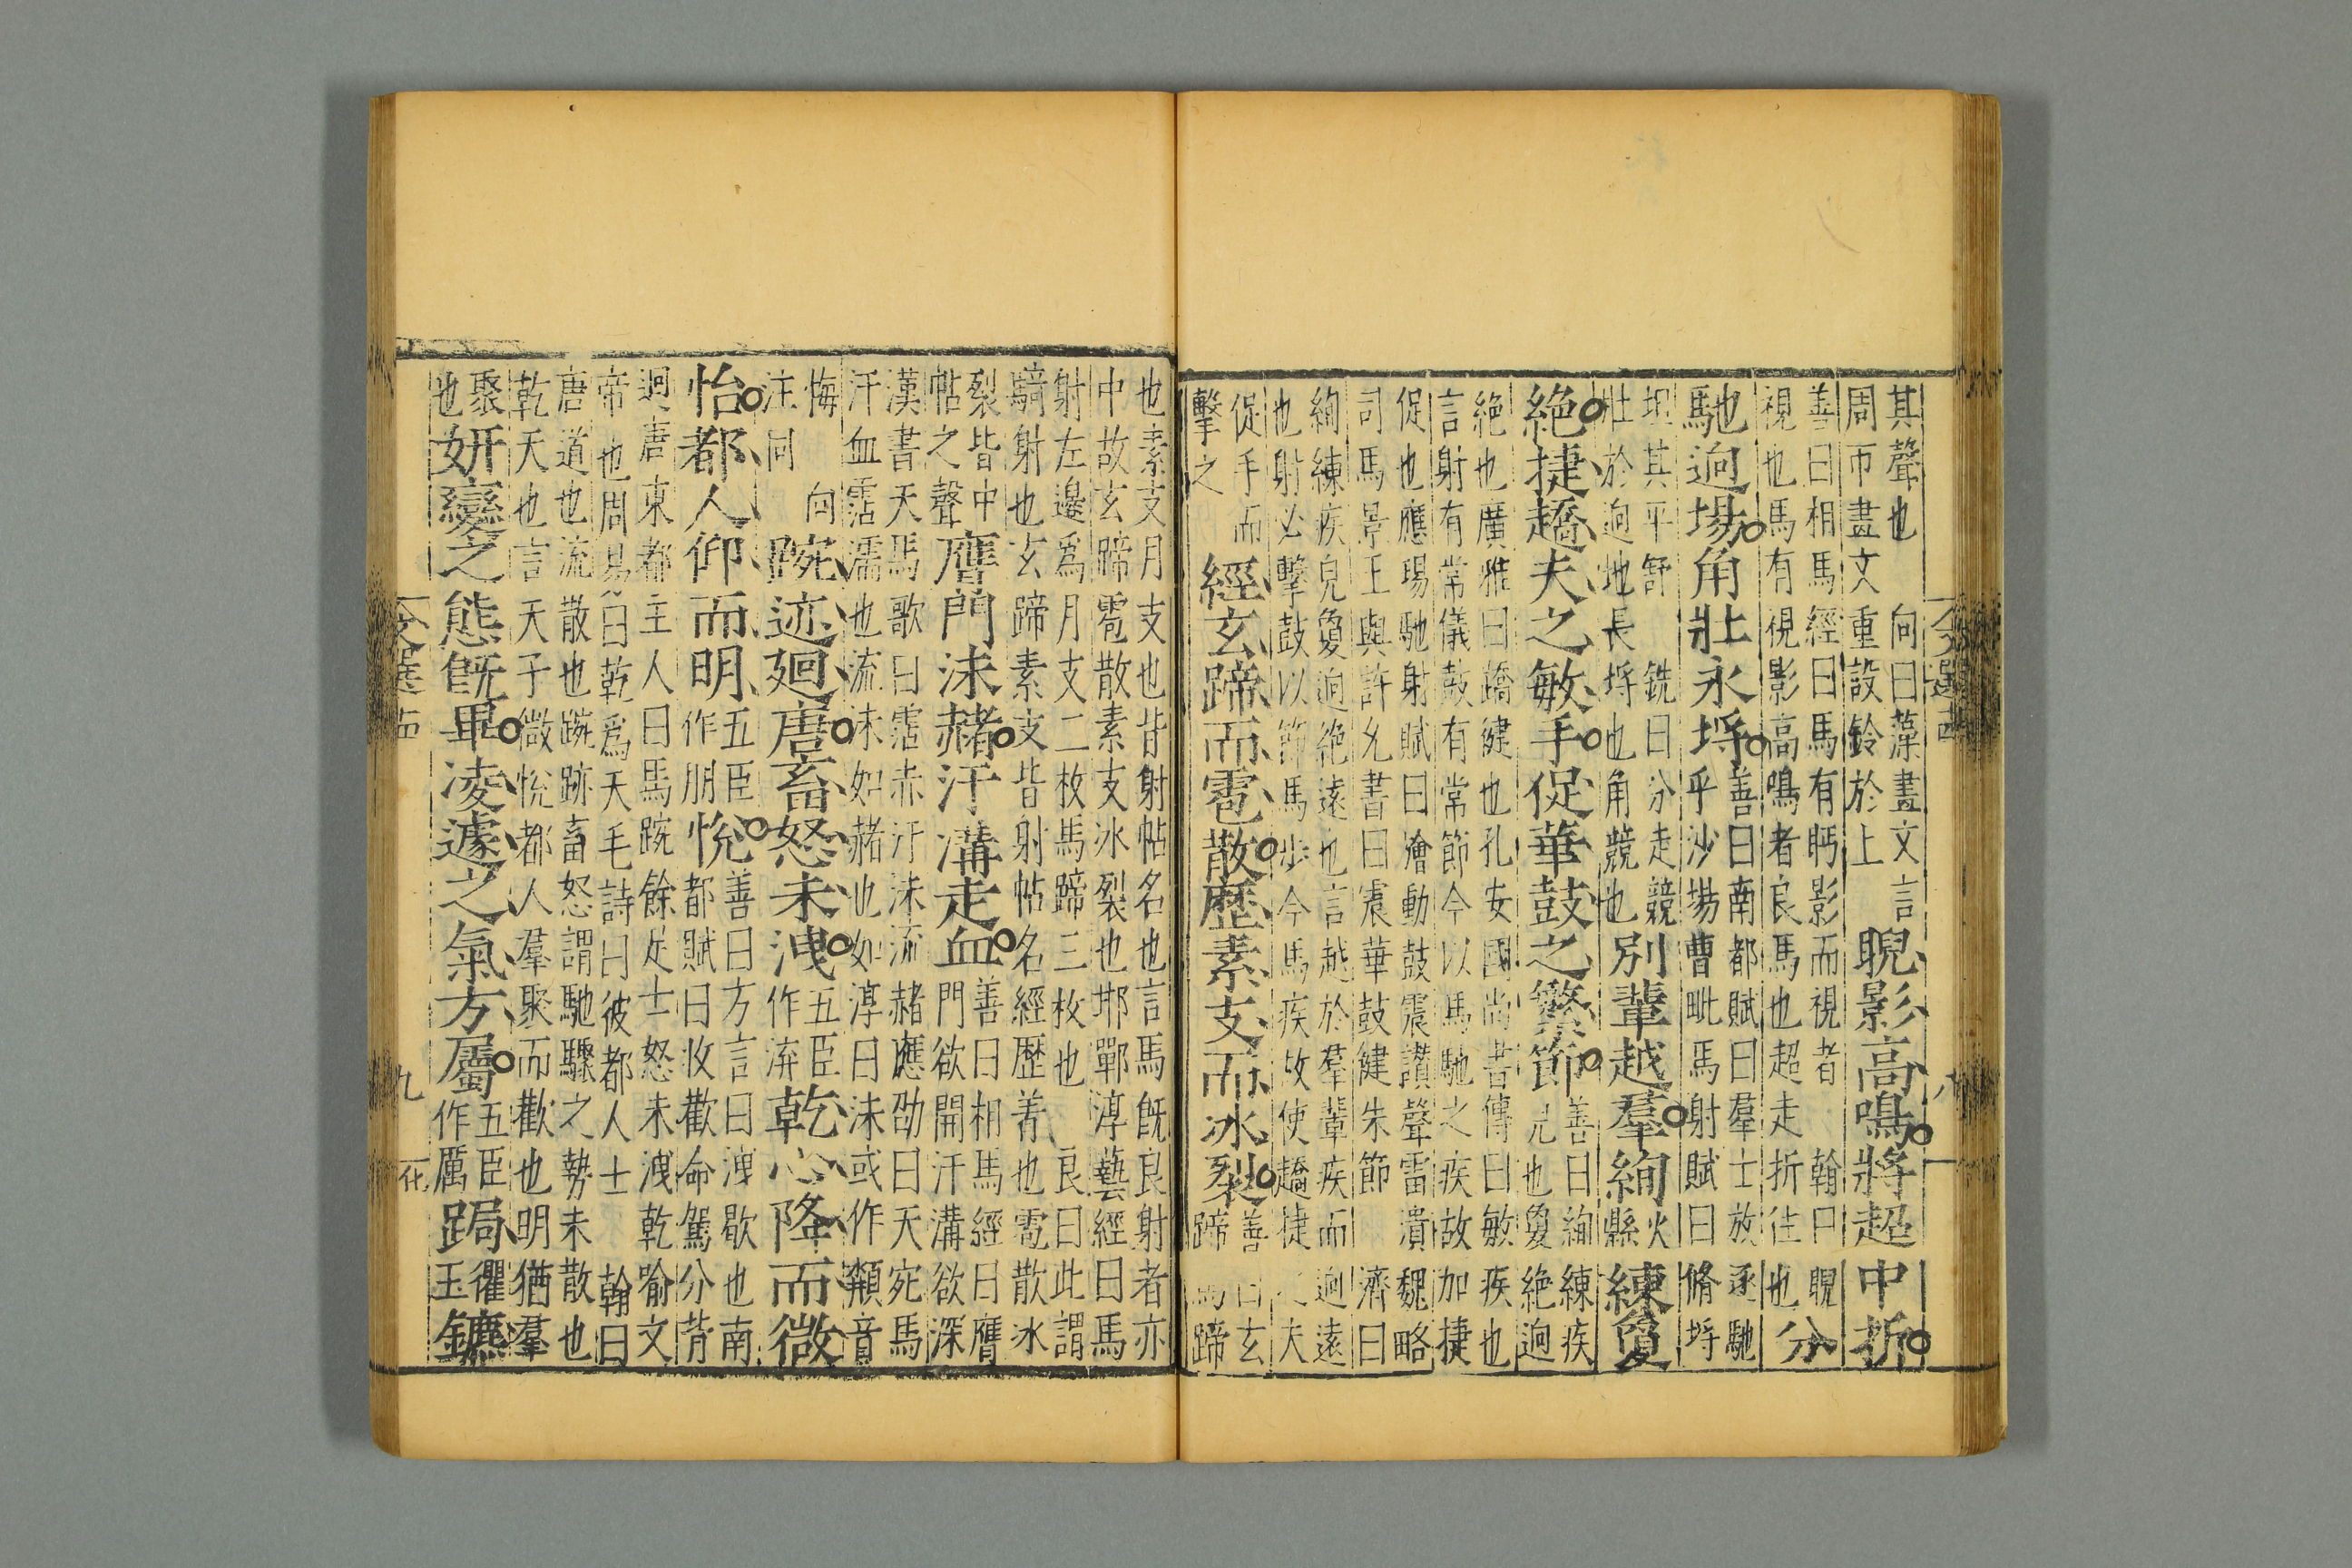 其聲也 向曰藻畫文言
周帀畫文重設鈴於上
睨影高鳴將超中折
善曰相馬經曰馬有眄影而視者 翰曰睨
視也馬有視影高鳴者良馬也超走折往也
分
馳迥場角壯永埒
善曰南都賦曰羣士放逐馳
乎沙場曹毗馬射賦曰脩埒
坦其平舒 銑曰分走競
壯於迥地長埒也角競也
別輩越羣絢
火
縣
練夐
絶捷趫夫之敏手促華鼓之繁節
善曰絢練疾
皃也夐絶迥
絶也廣雅曰蹻健也孔安國尚書傳曰敏疾也
言射有常儀鼓有常節今以馬馳之疾故加捷
促也應瑒馳射賦曰獪動鼓震讃聲雷潰魏略
司馬景王與許允書曰震華鼓建朱節 濟曰
絢練疾皃夐迥絶遠也言越於羣輩疾而迥遠
也射必擊鼓以節馬步今馬疾故使趫捷之夫
促手而
擊之
經玄蹄而雹散歷素支而冰裂
善曰玄
蹄馬蹄
也素支月支也皆射帖名也言馬旣良射者亦
中故玄蹄雹散素支冰裂也邯鄲淳藝經曰馬
射左邊爲月支二枚馬蹄三枚也 良曰此謂
騎射也玄蹄素支皆射帖名經歷著也雹散冰
裂皆中
帖之聲
膺門沬赭汗溝走血
善曰相馬經曰膺
門欲開汗溝欲深
漢書天馬歌曰霑赤汗沬流赭應劭曰天宛馬
汗血霑濡也流沬如赭也如淳曰沬或作頮音
悔 向
注同
踠迹廻唐畜怒未洩
五臣
作渫
乾心降而微
怡都人仰而明
五臣
作朋
悅
善曰方言曰洩歇也南
都賦曰收歡命駕分背
迴唐東都主人曰馬踠餘足士怒未洩乾喻文
帝也周易曰乾爲天毛詩曰彼都人士 翰曰
唐道也流散也踠跡畜怒謂馳驟之勢未散也
乾天也言天子微悅都人羣聚而歡也明猶羣
聚
也
妍變之態旣畢凌遽之氣方屬
五臣
作厲
跼
衢
玉
鑣
文選十四
八
文選十四
九